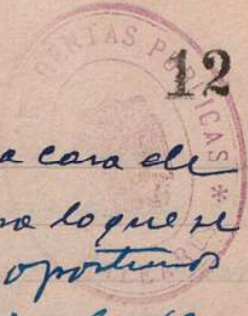 RENTAS PUBLICAS *
12
a casa de
so lo que se
oportunos